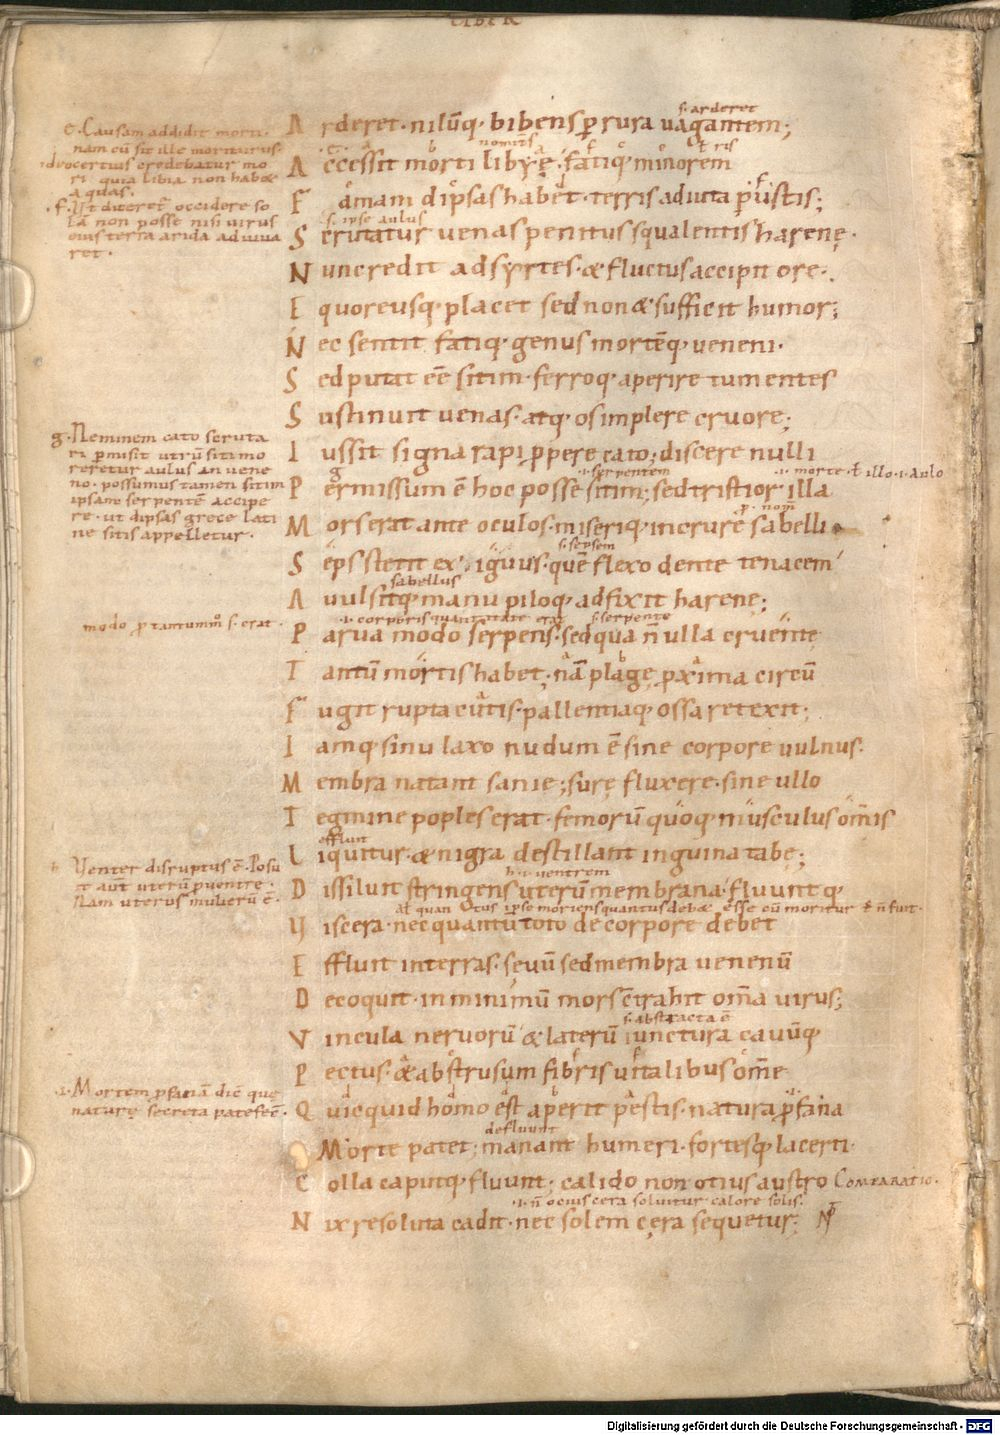 LIBER
s. arderet
Arderet · nilūq; bibens ꝑ rura uagantem;
e. Causam addidit morti ·
nam eū sit ille moriturus ·
idro certius credebatur mo
ri quia libia non habet
aquas.
Accessit morti libyę · fatiq; minorem
f. Vt diceret occidere so
la non posse nisi virus
eius terra arida adiuua
ret ·
Famam dipsas habet · terris adiuta ꝑustis;
s. ipse aulus
Scrutatur uenas penitus squalentis harenę ·
Nunc redit ad syrtes · & fluctus accipit ore ·
Equoreusq; placet sed non & sufficit humor;
Nec sentit fatiq; genus mortēq; ueneni ·
Sed putat eē sitim · ferroq; aperire tumentes
Sustinuit uenas · atq; os implere cruore;
g. Neminem cato scruta
ri ꝑmisit utrū siti mo
reretur aulus an uene
no · possumus tamen sitim
ipsam serpentē accipe
re · ut dipsas grece lati
ne sitis appelletur ·
Iussit signa rapi ꝓpere cato; discere nulli
.i. serpentem
.i. morte · ł illo · i · Aulo
Permissum ē hoc posse sitim; sed tristior illa
p. nom
Mors erat ante oculos · miseriq; in crure sabelli
s. sepsem
Seps stetit exiguus · quē flexo dente tenacem
sabellus
Auulsitq; manu piloq; adfixit harenę;
modo ꝓ tantummō s. erat ·
.i. corporis quantitate erat s. serpente
Parua modo serpens · sed qua ñ ulla cruentę
Tantū mortis habet; nā plagę ꝓxima circū
Fugit rupta cutis · pallentiaq; ossa retexit;
Iamq; sinu laxo nudum ē sine corpore uulnus ·
Membra natant sanie; surę fluxere · sine ullo
Tegmine poples erat · femorū quoq; musculus omīs
effluit
Liquitur · & nigra destillant inguina tabe;
h. Venter disruptus ē · Posu
it aūt uterū ꝓ uentre ·
Nam uterus mulierū ē ·
h. i. uentrem
Dissiluit stringens uterū membrana · fluuntq;
Viscera · nec quantū toto de corpore debet
Effluit in terras · seuū sed membra uenenū
Decoquit · in minimū mors cōtrahit om̄a uirus;
s. abstracta ē
Vincula neruorū & laterū iunctura cauūq;
Pectus · & abstrusum fibris uitalibus om̄e
.i. Mortem ꝓfanā dīc quę
naturę secreta patefēc̄ ·
Quicquid homo est aperit pestis · natura ꝓfana
defluunt
Morte patet; manant humeri · fortesq; lacerti ·
Colla caputq; fluunt; calido non otius austro COMPARATIO ·
.i. ñ ocius cera soluitur calore solis ·
Nix resoluta cadit · nec solem cera sequetur;
Digitalisierung gefördert durch die Deutsche Forschungsgemeinschaft - DFG